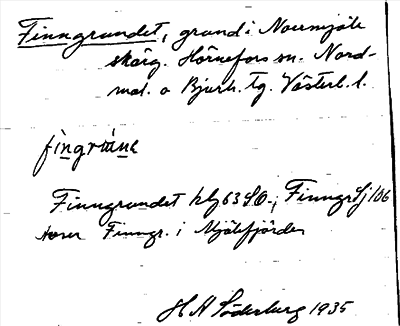 Finngrundet, grund i Norrmjöle
skärg. Hörnefors sn. Nord-
mal. o Bjurh. tg. Västerb. l.
Finngrundet 63 SO.; Finngr Sj 106
Finngr. i Mjölefjärden
H A Söderberg 1935